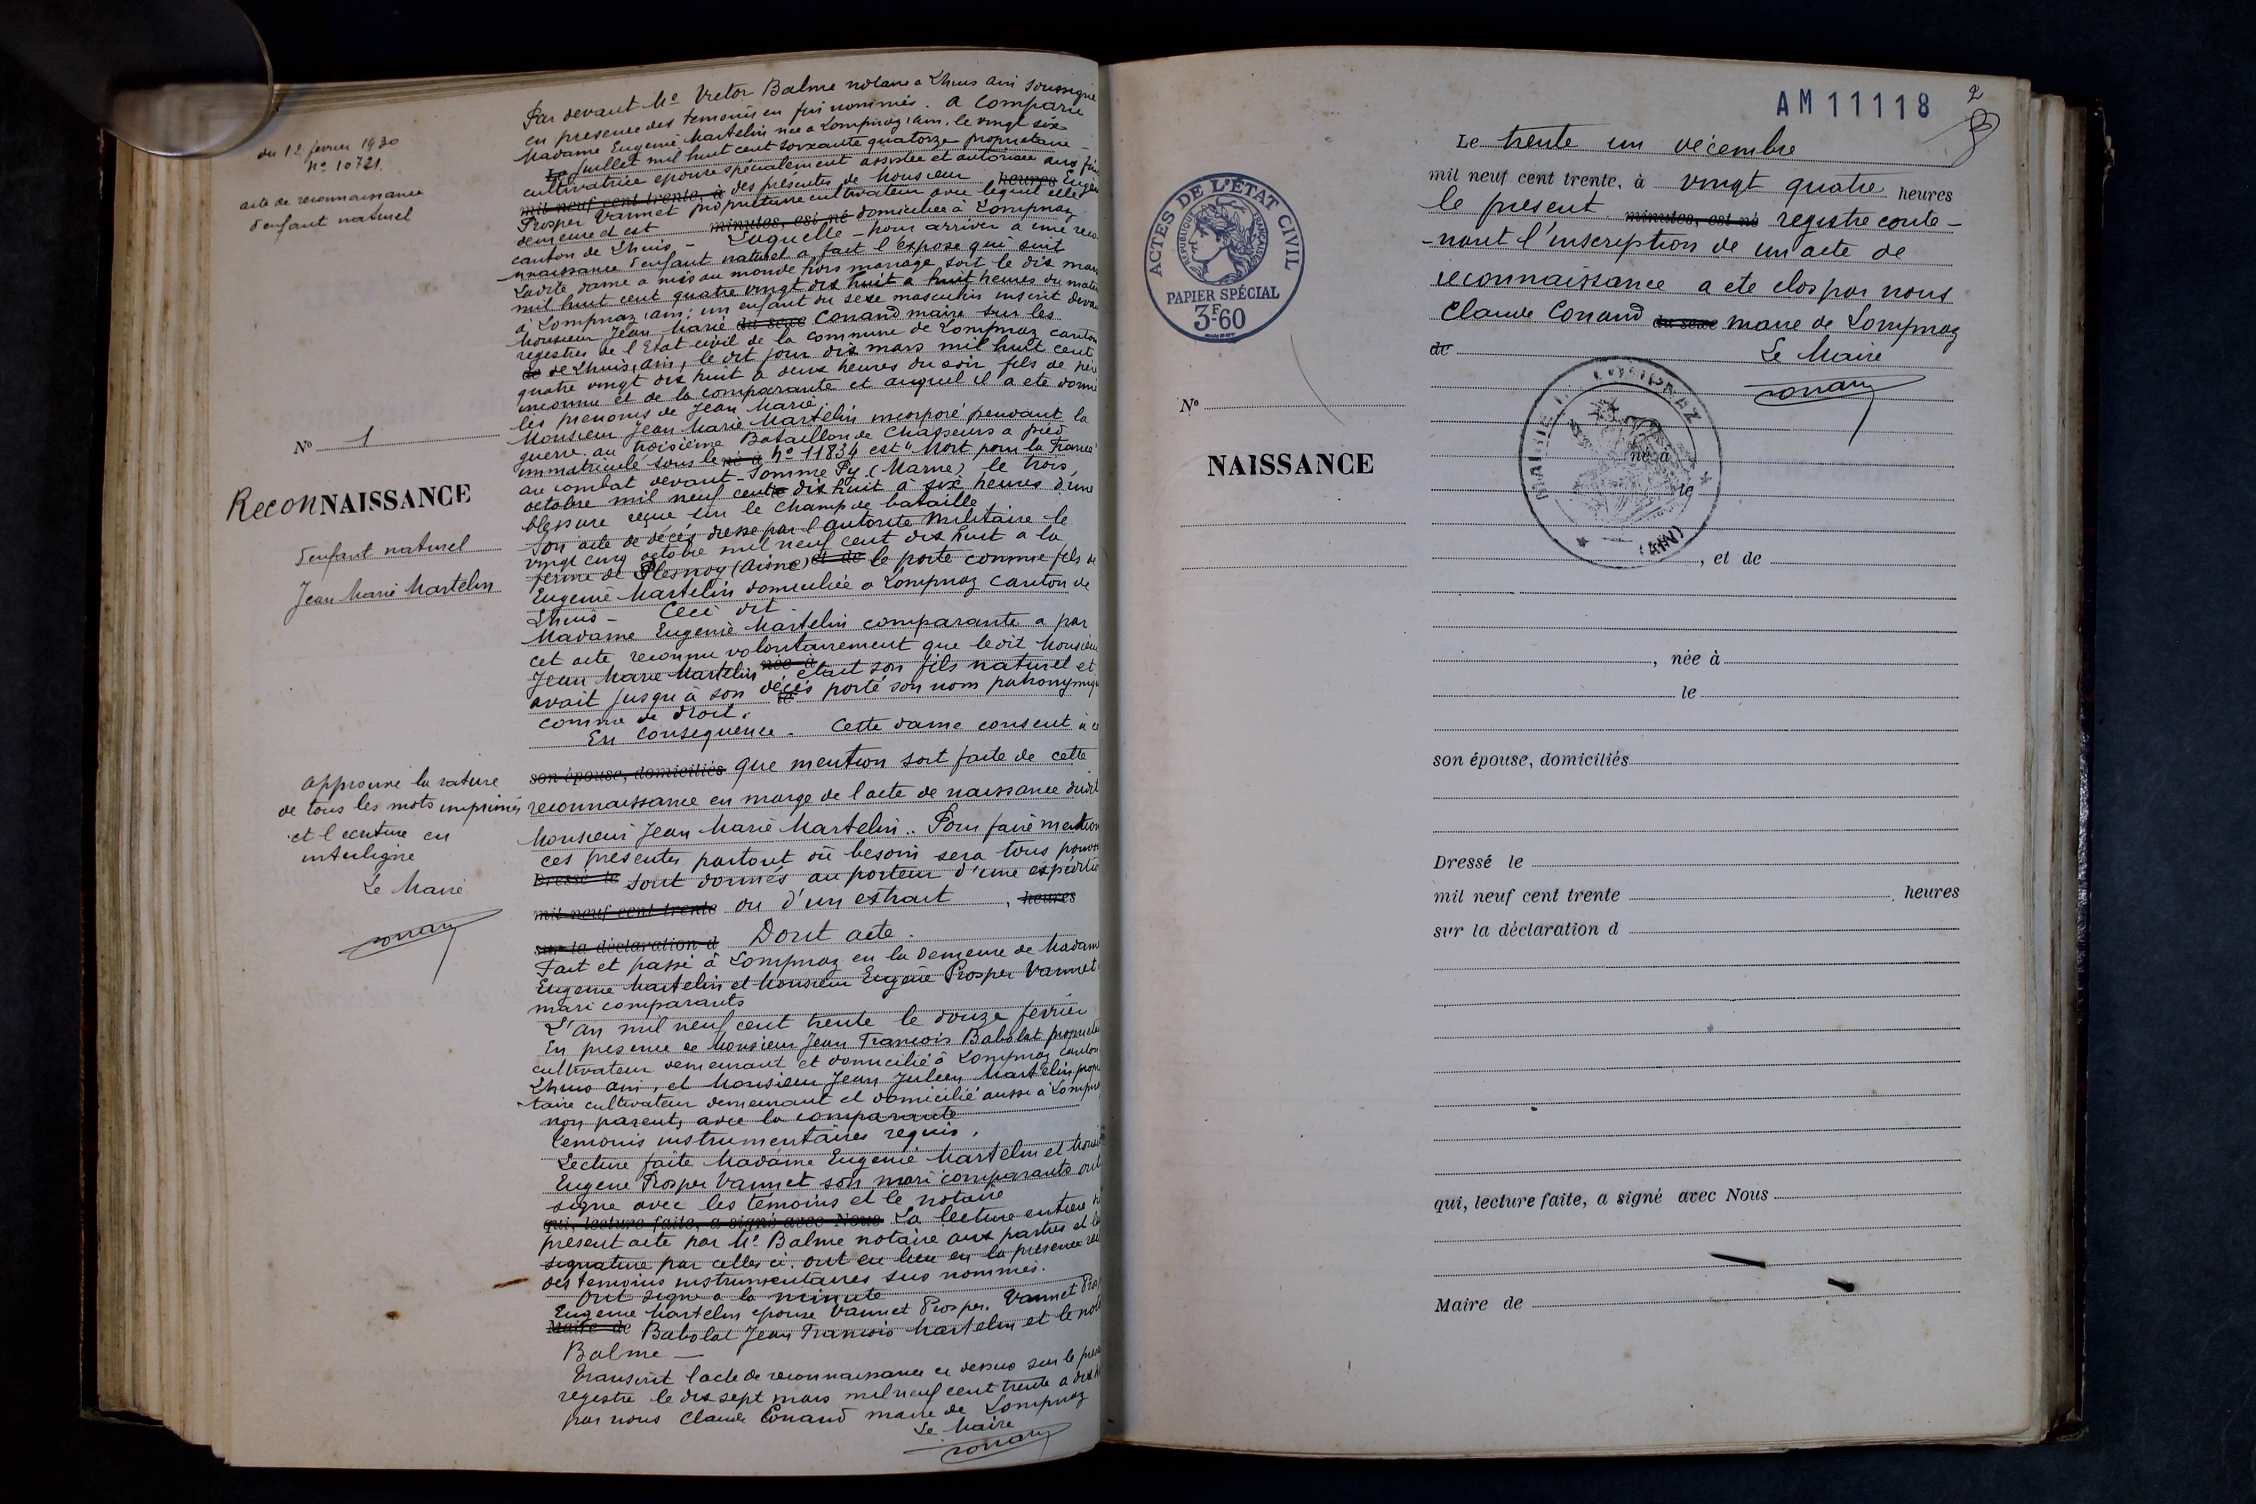 du 12 fevrier 1930
N° 10721.
acte de reconnaissance
d'enfant naturel
N° 1
ReconNAISSANCE
d'enfant naturel
Jean Marie Martelin
approuvé la rature
de tous les mots imprimés
et l'ecriture en
interligne
Le Maire
Conand
Par devant Me Victor Balme notaire a Lhuis ain soussigné
en presence des temoins en fin nommés. a comparu
Madame Eugenie Martelin née a Lompnaz, ain, le vingt six
Le juillet mil huit cent soixante quatorze proprietaire -
cultivatrice epouse spécialement assistée et autorisée aux fins
mil neuf cent trente, à des présentes de Monsieur heures Eugene
Prosper Vannet proprietaire cultivateur avec lequel elle
demeure et est minutes, est né domiciliée à Lompnaz
canton de Lhuis - Laquelle - pour arriver a une reco
nnaissance d'enfant naturel a fait l'exposé qui suit
Ladite dame a mis au monde hors mariage soit le dix mars
mil huit cent quatre vingt dix huit a huit heures du matin
a Lompnaz, ain; un enfant du sexe masculin inscrit devant
Monsieur Jean Marie du sexe Conand maire sur les
registres de l'Etat civil de la commune de Lompnaz canton
de de Lhuis, ain, le dit jour dix mars mil huit cent
quatre vingt dix huit a deux heures du soir, fils de père
inconnu et de la comparante et auquel il a ete donné
les prenoms de Jean Marie.
Monsieur Jean Marie Martelin incorporé pendant la
guerre au troisième Bataillon de Chasseurs a pied
immatriculé sous le né à N° 11834 est "Mort pour la France"
au combat devant - Somme Py (Marne) le trois
octobre mil neuf cent dix huit à six heures d'une
blessure reçue sur le champ de bataille
Son acte de décés dressé par l'autorité Militaire le
vingt cinq octobre mil neuf cent dix huit a la
ferme de Plesnoy (Aisne) et de le porte comme fils de
Eugenie Martelin domiciliée a Lompnaz canton de
Lhuis - Ceci dit
Madame Eugenie Martelin comparante a par
cet acte reconnu volontairement que ledit Monsieur
Jean Marie Martelin née à était son fils naturel et
avait jusqu'à son décés le porté son nom patronymique
comme de droit.
En consequence. Cette dame consent à ce
son épouse, domiciliés que mention soit faite de cette
reconnaissance en marge de l'acte de naissance dudit
Monsieur Jean Marie Martelin.. Pour faire mention
ces presentes partout où besoin sera tous pouvoirs
Dressé le sont donnés au porteur d'une expédition
mil neuf cent trente ou d'un extrait , heures
sur la déclaration d Dont acte.
Fait et passé à Lompnaz en la demeure de Madame
Eugenie Martelin et Monsieur Eugène Prosper Vannet
mari comparants
L'an mil neuf cent trente le douze février
En presence de Monsieur Jean Francois Babolat propriétaire
cultivateur demeurant et domicilié à Lompnaz canton
Lhuis ain, et Monsieur Jean Julien Martelin propri
-taire cultivateur demeurant et domicilié aussi à Lompnaz
non parents avec la comparante
temoins instrumentaires requis,
Lecture faite Madame Eugenie Martelin et Monsieur
Eugene Prosper Vannet son mari comparants ont
signé avec les témoins et le notaire
qui, lecture faite, a signé avec Nous La lecture entiere
present acte par Me Balme notaire aux parties et la
signature par celles ci. ont eu lieu en la présence
des temoins instrumentaires sus nommés.
Ont signé a la minute
Eugenie Martelin epouse Vannet Prosper. Vannet
Maire de Babolat Jean Francois Martelin et le
Balme -
Transcrit l'acte de reconnaissance ci dessus sur le
registre le dix sept mars mil neuf cent trente a
par nous Claude Conand maire de Lompnaz
Le Maire
Conand
AM 11118
2
ACTES DE L'ÉTAT CIVIL
RÉPUBLIQUE FRANÇAISE
PAPIER SPÉCIAL
3F·60
N°
NAISSANCE
Le trente un décembre
mil neuf cent trente, à vingt quatre heures
le present minutes, est né registre conte-
-nant l'inscription de un acte de
reconnaissance a ete clos par nous
Claude Conand du sexe maire de Lompnaz
de Le Maire
Conand
(AIN)
né à
le
, et de
, née à
le
son épouse, domiciliés
Dressé le
mil neuf cent trente , heures
sur la déclaration d
qui, lecture faite, a signé avec Nous
Maire de